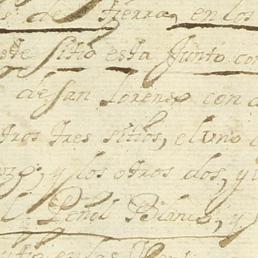 de tierra, en los
este sitio esta junto con
de san Lorenso con d
tros tres sitios, el uno
y los otros dos, y
el Peñol Blanco, y